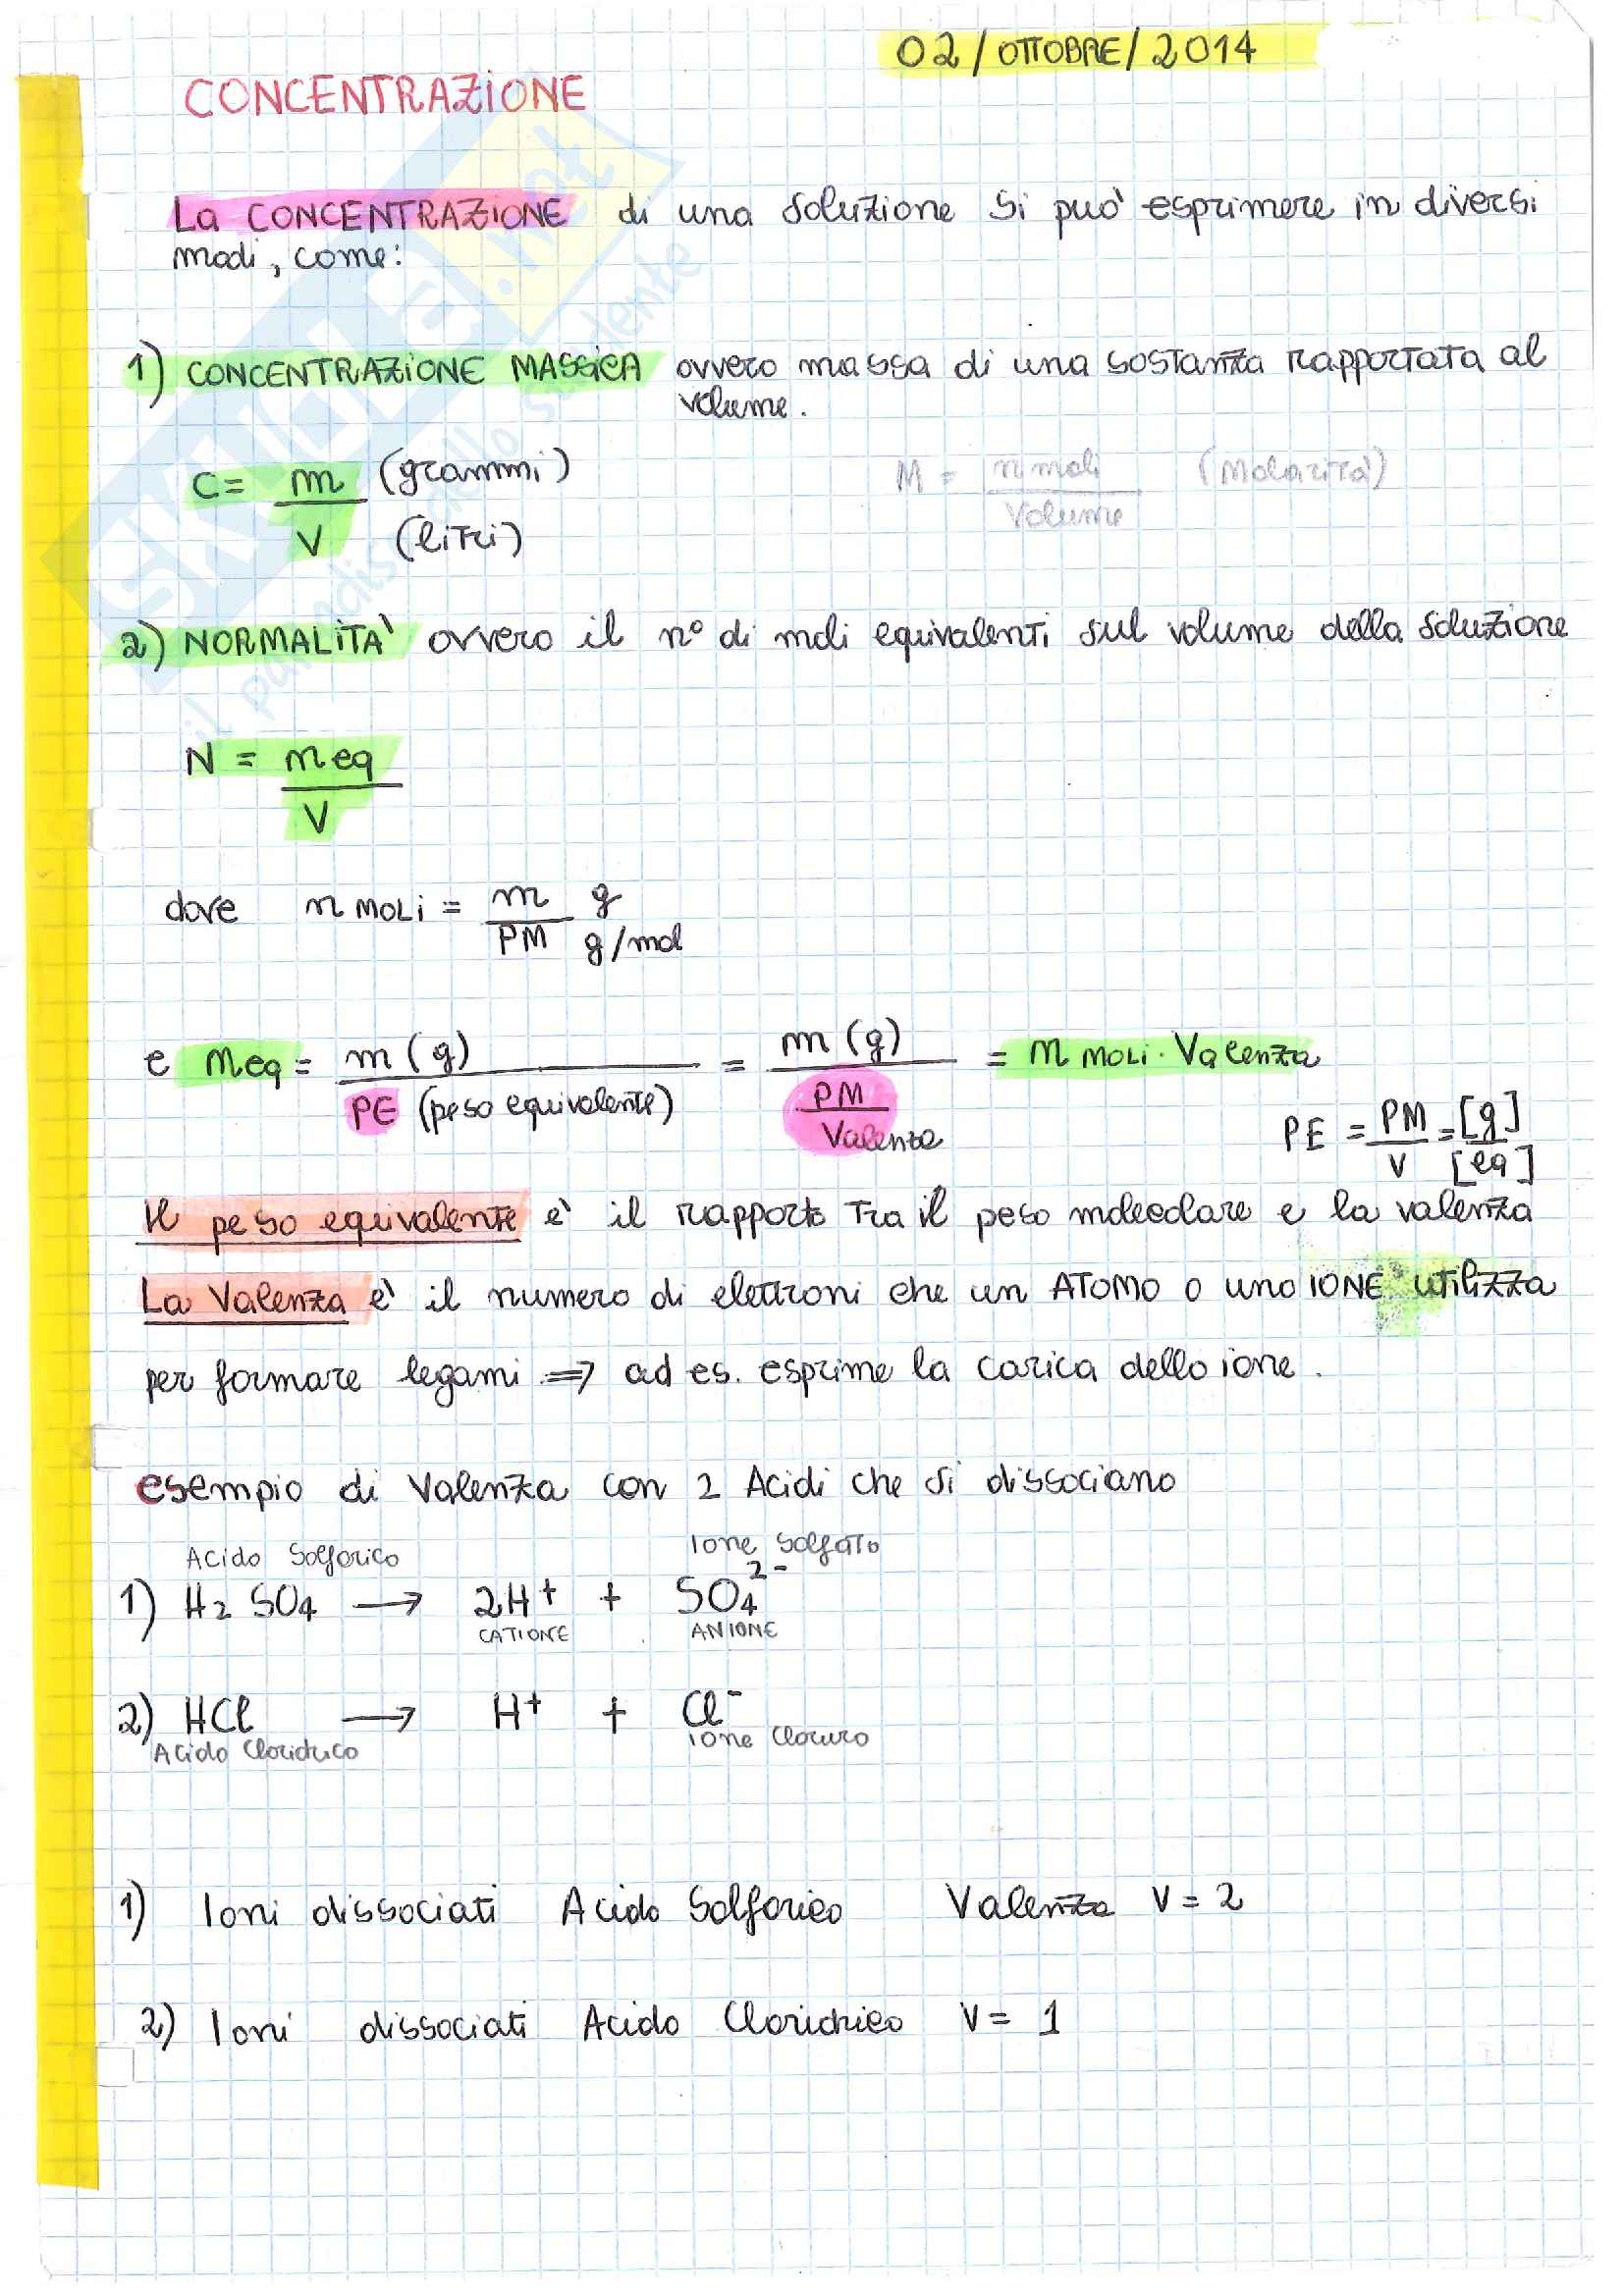 02/OTTOBRE/2014
CONCENTRAZIONE
La CONCENTRAZIONE di una soluzione si può esprimere in diversi
modi, come:
1) CONCENTRAZIONE MASSICA ovvero massa di una sostanza rapportata al
volume.
C = m (grammi) / V (litri)
M = n moli / Volume (Molarità)
2) NORMALITA' ovvero il n° di moli equivalenti sul volume della soluzione
N = neq / V
dove n MOLi = m g / PM g/mol
e neq = m (g) / PE (peso equivalente) = m (g) / PM / Valenza = n MOLi · Valenza
PE = PM / V = [g] / [eq]
Il peso equivalente è il rapporto tra il peso molecolare e la valenza
La Valenza è il numero di elettroni che un ATOMO o uno IONE utilizza
per formare legami ⇒ ad es. esprime la carica dello ione.
esempio di Valenza con 2 Acidi che si dissociano
Acido Solforico Ione Solfato
1) H2 SO4 → 2H+ + SO4 2-
CATIONE ANIONE
2) HCl → H+ + Cl-
Acido Cloridrico Ione Cloruro
1) Ioni dissociati Acido Solforico Valenza V = 2
2) Ioni dissociati Acido Cloridrico V = 1
SKUOLA.net
il paradiso dello studente